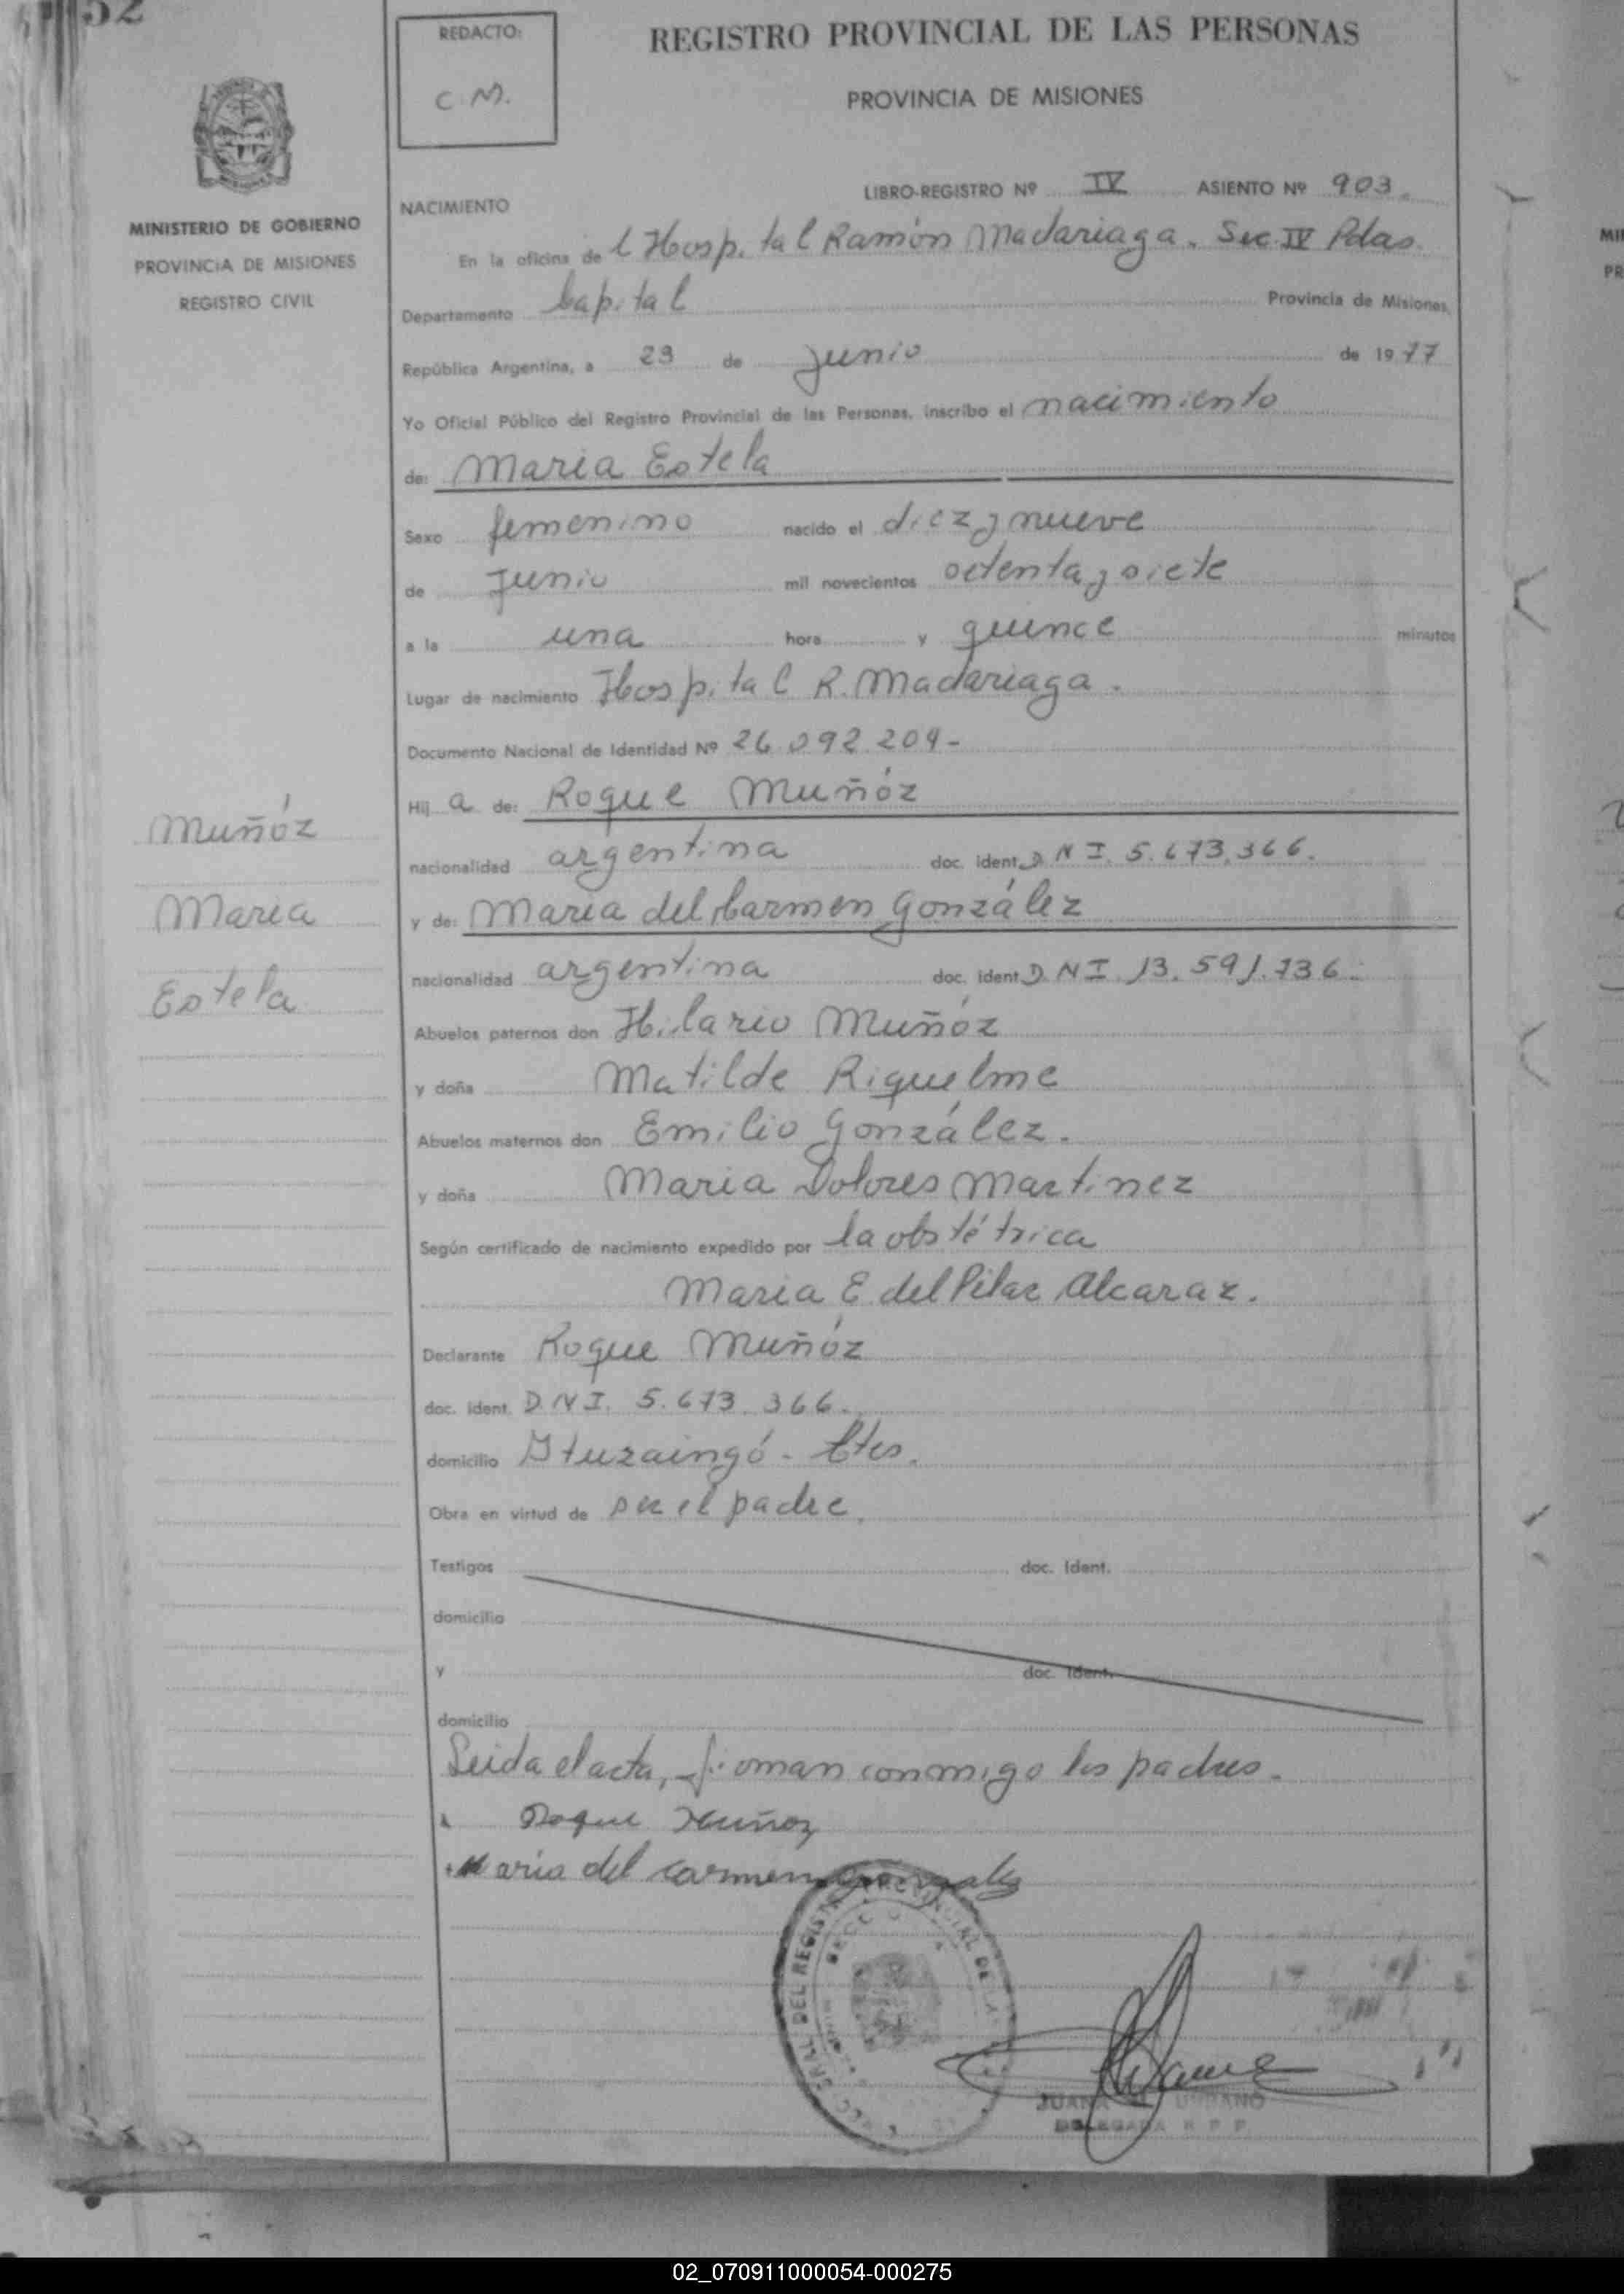 52
REDACTO:
C.M.
REGISTRO PROVINCIAL DE LAS PERSONAS
PROVINCIA DE MISIONES
MINISTERIO DE GOBIERNO
PROVINCIA DE MISIONES
REGISTRO CIVIL
LIBRO-REGISTRO Nº IV ASIENTO Nº 903.
NACIMIENTO
En la oficina de l Hospital Ramón Madariaga. Sec. IV Pdas.
Departamento Capital Provincia de Misiones,
República Argentina, a 29 de Junio de 1977
Yo Oficial Público del Registro Provincial de las Personas, inscribo el nacimiento
de: Maria Estela
Sexo femenino nacido el diez y nueve
de Junio mil novecientos setenta y siete
a la una hora y quince minutos
Lugar de nacimiento Hospital R. Madariaga.
Documento Nacional de Identidad Nº 26.092.204-
Hij a de: Roque Muñóz
nacionalidad argentina doc. ident. D.N.I. 5.673.366.
y de: Maria del Carmen González
nacionalidad argentina doc. ident. D.N.I. 13.591.736.
Abuelos paternos don Hilario Muñóz
y doña Matilde Riquelme
Abuelos maternos don Emilio González.
y doña Maria Dolores Martinez
Según certificado de nacimiento expedido por la obstétrica
Maria E. del Pilar Alcaraz.
Declarante Roque Muñóz
doc. ident. D.N.I. 5.673.366.
domicilio Ituzaingó - Ctes.
Obra en virtud de ser el padre.
Testigos doc. Ident.
domicilio
y doc. Ident.
domicilio
Leida el acta, firman conmigo los padres.
Roque Muñoz
Maria del Carmen Gonzalez
Muñóz
Maria
Estela
DEL REGISTRO PROVINCIAL DE LA
JUANA URBANO
DELEGADA R P P
02_070911000054-000275